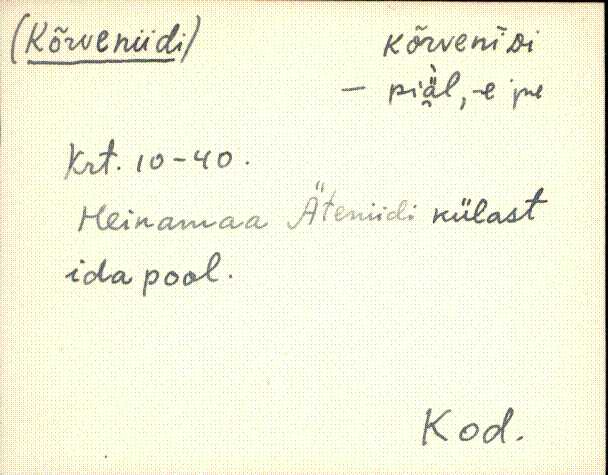 (Kõrveniidi)
kõrveniDi
- piäl, -e pe
Krt. 10-40.
Heinamaa Äteniidi külast
ida pool.
Kod.